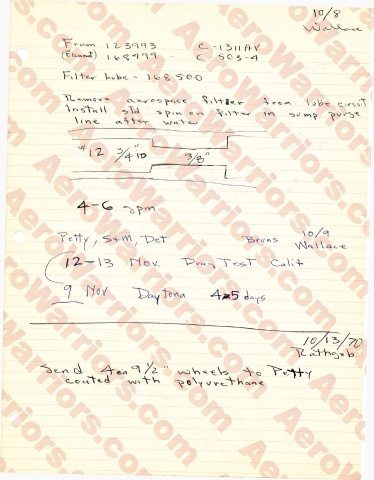 10/8
Wallace
From 123993 C-1311AV
(Element) 168499 - C 503-4
Filter Lube - 168500
Remove aerospace filter from lube circuit
Install std spin on filter in sump purge
line after water
#12 3/4" ID 3/8"
4-6 gpm
Petty, S+M, Det Bruns 10/9
Wallace
12-13 Nov. Drag Test Calif
9 Nov Daytona 4-5 days
10/13/70
Rathgeb
Send 4 ea 9 1/2" wheels to Petty
coated with polyurethane
AeroWarriors.com